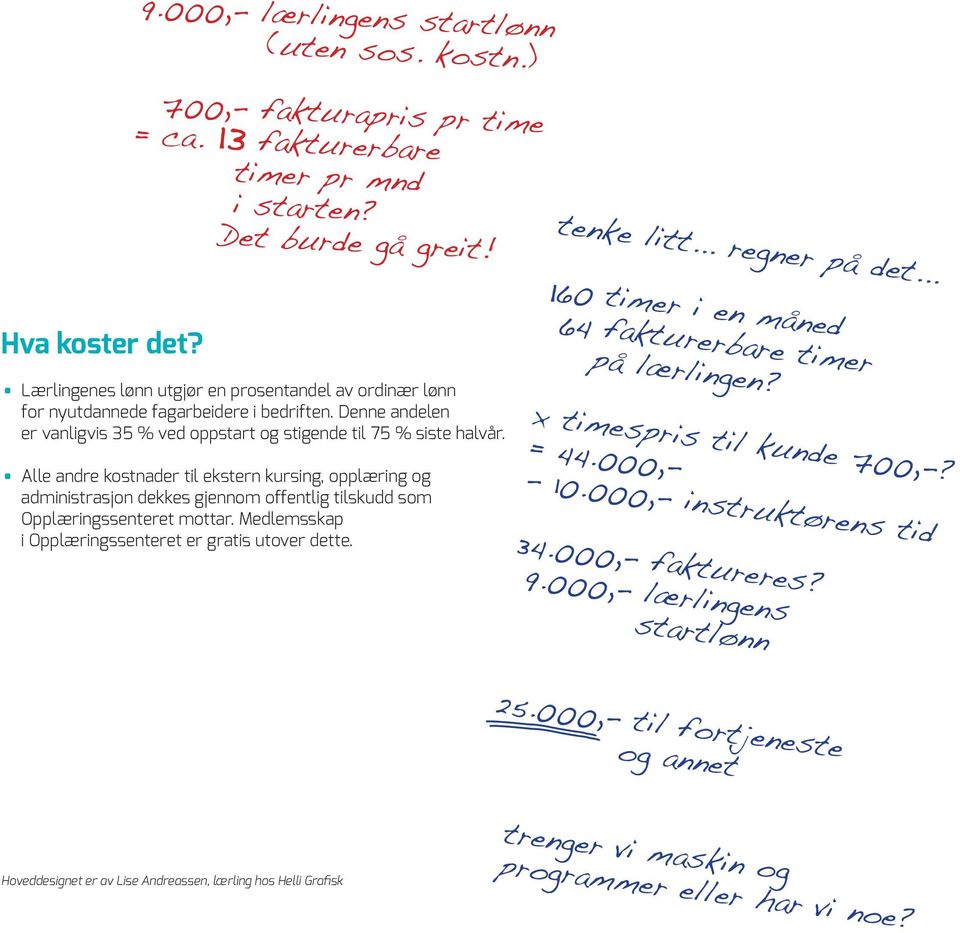 9.000,- lærlingens startlønn
(uten sos. kostn.)
700,- fakturapris pr time
= ca. 13 fakturerbare
timer pr mnd
i starten?
Det burde gå greit!
Hva koster det?
• Lærlingenes lønn utgjør en prosentandel av ordinær lønn
for nyutdannede fagarbeidere i bedriften. Denne andelen
er vanligvis 35 % ved oppstart og stigende til 75 % siste halvår.
• Alle andre kostnader til ekstern kursing, opplæring og
administrasjon dekkes gjennom offentlig tilskudd som
Opplæringssenteret mottar. Medlemsskap
i Opplæringssenteret er gratis utover dette.
tenke litt... regner på det...
160 timer i en måned
64 fakturerbare timer
på lærlingen?
x timespris til kunde 700,-?
= 44.000,-
- 10.000,- instruktørens tid
34.000,- faktureres?
9.000,- lærlingens
startlønn
25.000,- til fortjeneste
og annet
trenger vi maskin og
programmer eller har vi noe?
Hoveddesignet er av Lise Andreassen, lærling hos Helli Grafisk